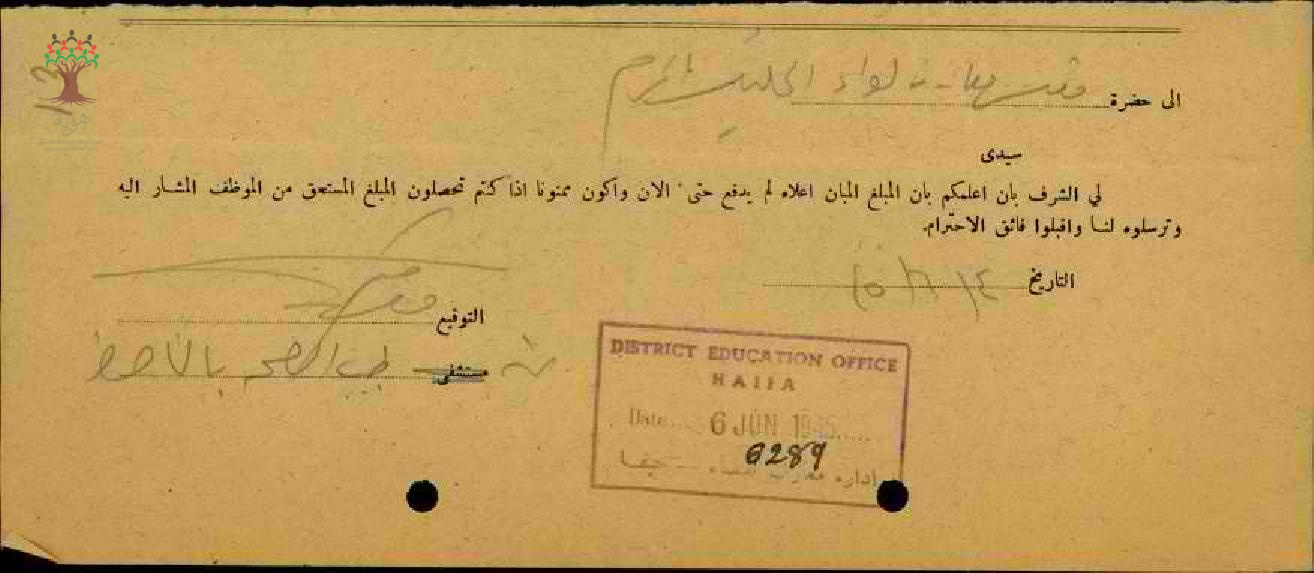 الى حضرة مفتش معارف لواء الجليل المحترم
سيدى
لي الشرف بان اعلمكم بان المبلغ المبان اعلاه لم يدفع حتى الان واكون ممنونا اذا كنتم تحصلون المبلغ المستحق من الموظف المشار اليه
وترسلوه لنا واقبلوا فائق الاحترام.
التاريخ
التوقيع
مستشفى
DISTRICT EDUCATION OFFICE
HAIFA
Date 6 JUN 1945
6289
اداره معارف اللواء - حيفا